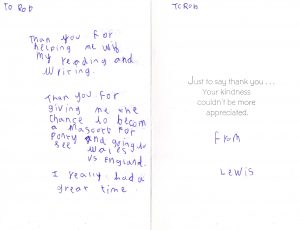 TO ROD
Than you For
helping me with
my reading and
writing.
Than you For
giving me the
chance to becom
a Mascot For
Poney and going to
see Wales
vs England.
I really had a
great time.
TO ROD
Just to say thank you . . .
Your kindness
couldn't be more
appreciated.
From
Lewis